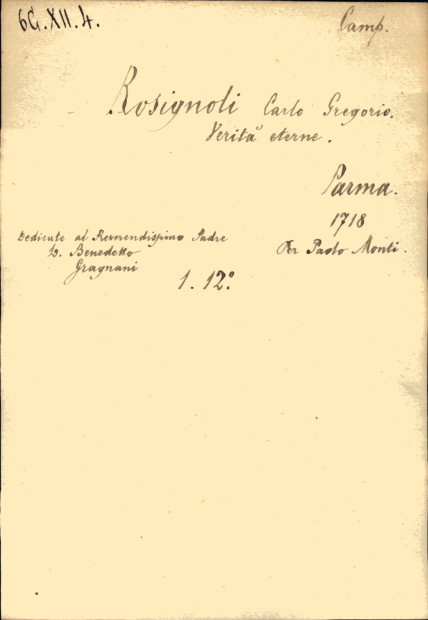 6G.XII.4.
Camp.
Rosignoli Carlo Gregorio.
Verità eterne.
Parma.
1718
Per Paolo Monti.
Dedicate al Reverendissimo Padre
D. Benedetto
Gragnani
1. 12°.